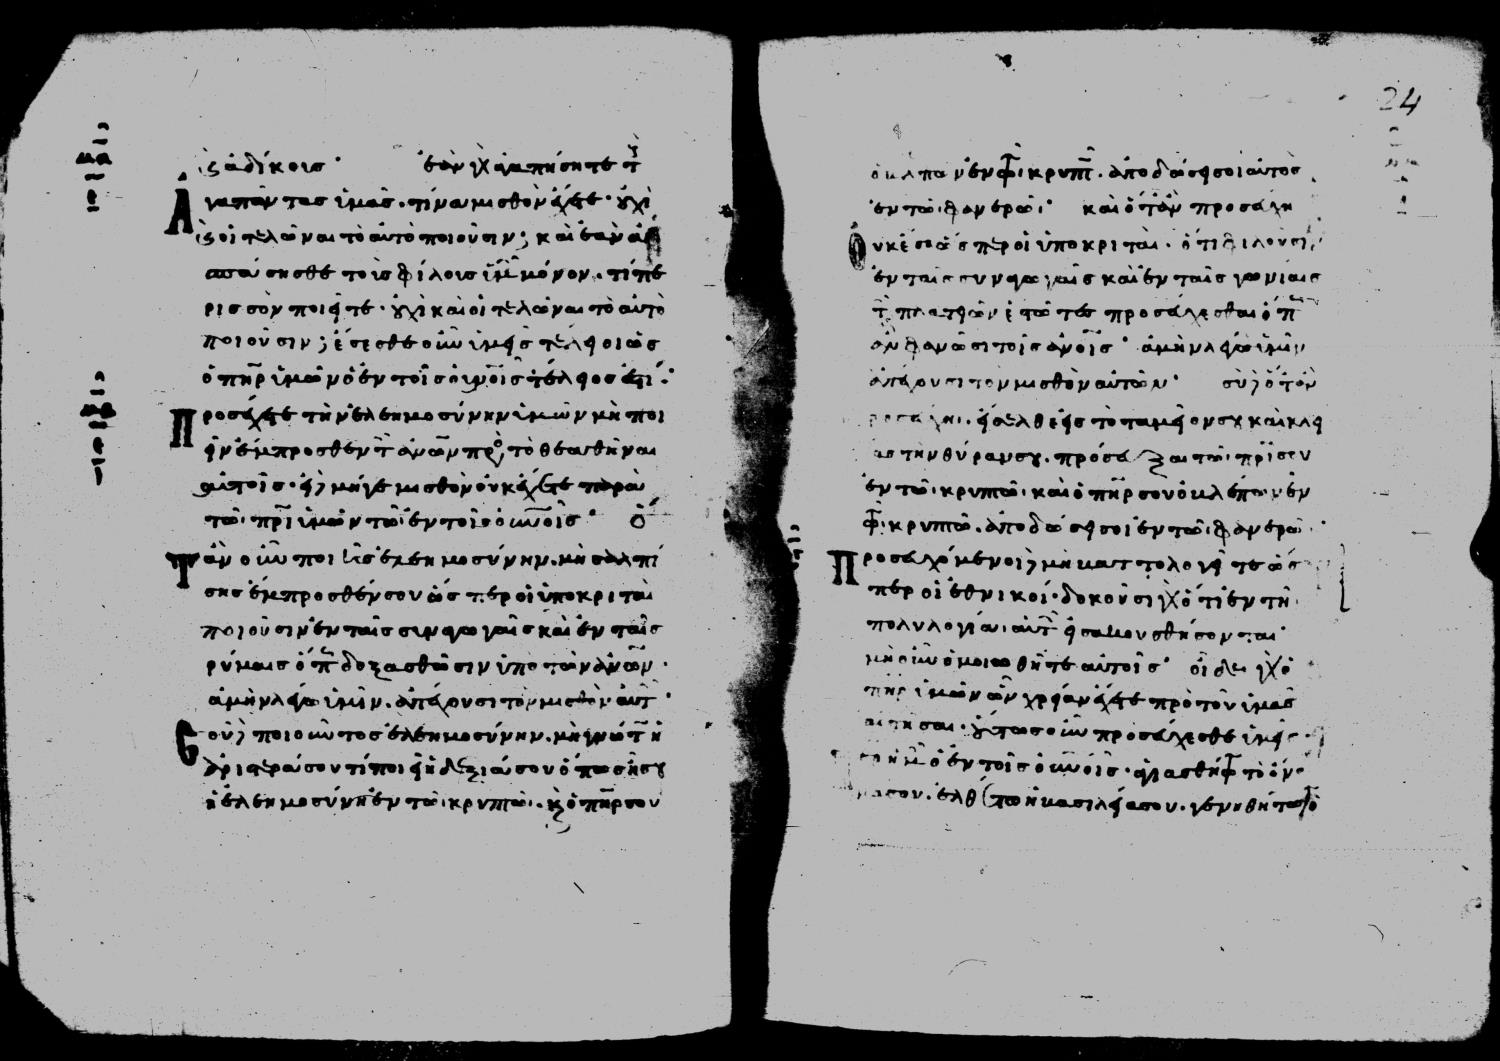 ϗ ἀδίκοις· ἐὰν γὰρ ἀγαπήσητε τ(οὺς)
Ἀγαπῶντας ὑμᾶς. τίνα μισθὸν ἔχετε· οὐχὶ
ϗ οἱ τελῶναι τὸ αὐτὸ ποιοῦσιν; καὶ ἐὰν ἀ
σπάσησθε τοὺς φίλους ὑμῶν μόνον. τί πε
ρισσὸν ποιεῖτε· οὐχὶ καὶ οἱ τελῶναι τὸ αὐτὸ
ποιοῦσιν; ἔσεσθε οὖν ὑμεῖς τέλειοι ὡς
ὁ πῆρ ὑμῶν ὁ ἐν τοῖς οὐνοῖς τέλειος ἐστί·
Προσέχετε τὴν ἐλεημοσύνην ὑμῶν μὴ ποι
εῖν ἔμπροσθεν τῶν ἀνῶν πρὸς τὸ θεαθῆναι
αὐτοῖς· εἰ δὲ μήγε μισθὸν οὐκ ἔχετε παρὰ
τῶ πρὶ ὑμῶν τῶ ἐν τοῖς οὐνοῖς· Ὁ
Τὰν οὖν ποιῆς ἐλεημοσύνην. μὴ σαλπί
σης ἔμπροσθέν σου ὥσπερ οἱ ὑποκριταὶ
ποιοῦσιν ἐν ταῖς συναγωγαῖς καὶ ἐν ταῖς
ρύμαις ὅπ(ως) δοξασθῶσιν ὑπὸ τῶν ἀνῶν·
ἀμὴν λέγω ὑμῖν. ἀπέχουσι τὸν μισθὸν αὐτ(ῶν)·
Σοῦ δὲ ποιοῦντος ἐλεημοσύνην. μὴ γνώτω ἡ
ἀριστερά σου τί ποιεῖ ἡ δεξιά σου ὅπως ἦ σου
ἡ ἐλεημοσύνη ἐν τῶ κρυπτῶ. ϗ ὁ πῆρ σου
ὁ βλέπων ἐν τῶ κρυπτ(ῶ). ἀποδώσει σοι αὐτὸς
ἐν τῶ φανερῶ· καὶ ὅταν προσεύχη
Οὐκ ἔση ὥσπερ οἱ ὑποκριταί. ὅτι φιλοῦσιν
ἐν ταῖς συναγωγαῖς καὶ ἐν ταῖς γωνίαις
τῶν πλατειῶν ἑστῶτες προσεύχεσθαι ὅπ(ως)
ἂν φανῶσι τοῖς ἀνοῖς· ἀμὴν λέγω ὑμῖν
ἀπέχουσι τὸν μισθὸν αὐτῶν· σὺ δὲ ὅταν
προσεύχη. εἴσελθε εἰς τὸ ταμεῖον σου καὶ κλεί
σας τὴν θύραν σου. πρόσευξαι τῶ πρί σου
ἐν τῶ κρυπτῶ. καὶ ὁ πῆρ σου ὁ βλέπων ἐν
τῶ κρυπτῶ. ἀποδώσει σοι ἐν τῶ φανερῶ·
Προσευχόμενοι δὲ μὴ βαττολογεῖτε ὥσ
περ οἱ ἐθνικοί. δοκοῦσι γὰρ ὅτι ἐν τῆ
πολυλογία αὐτ(ῶν) εἰσακουσθήσονται·
μὴ οὖν ὁμοιωθῆτε αὐτοῖς· οἶδε γὰρ ὁ
πῆρ ὑμῶν ὧν χρείαν ἔχετε πρὸ τοῦ ὑμᾶς
αἰτῆσαι. οὕτως οὖν προσεύχεσθε ὑμεῖς·
ἡμῶν ὁ ἐν τοῖς οὐνοῖς. ἁγιασθήτω τὸ ὄνο
μα σου. ἐλθέτω ἡ βασιλεία σου. γενηθήτω τὸ
24